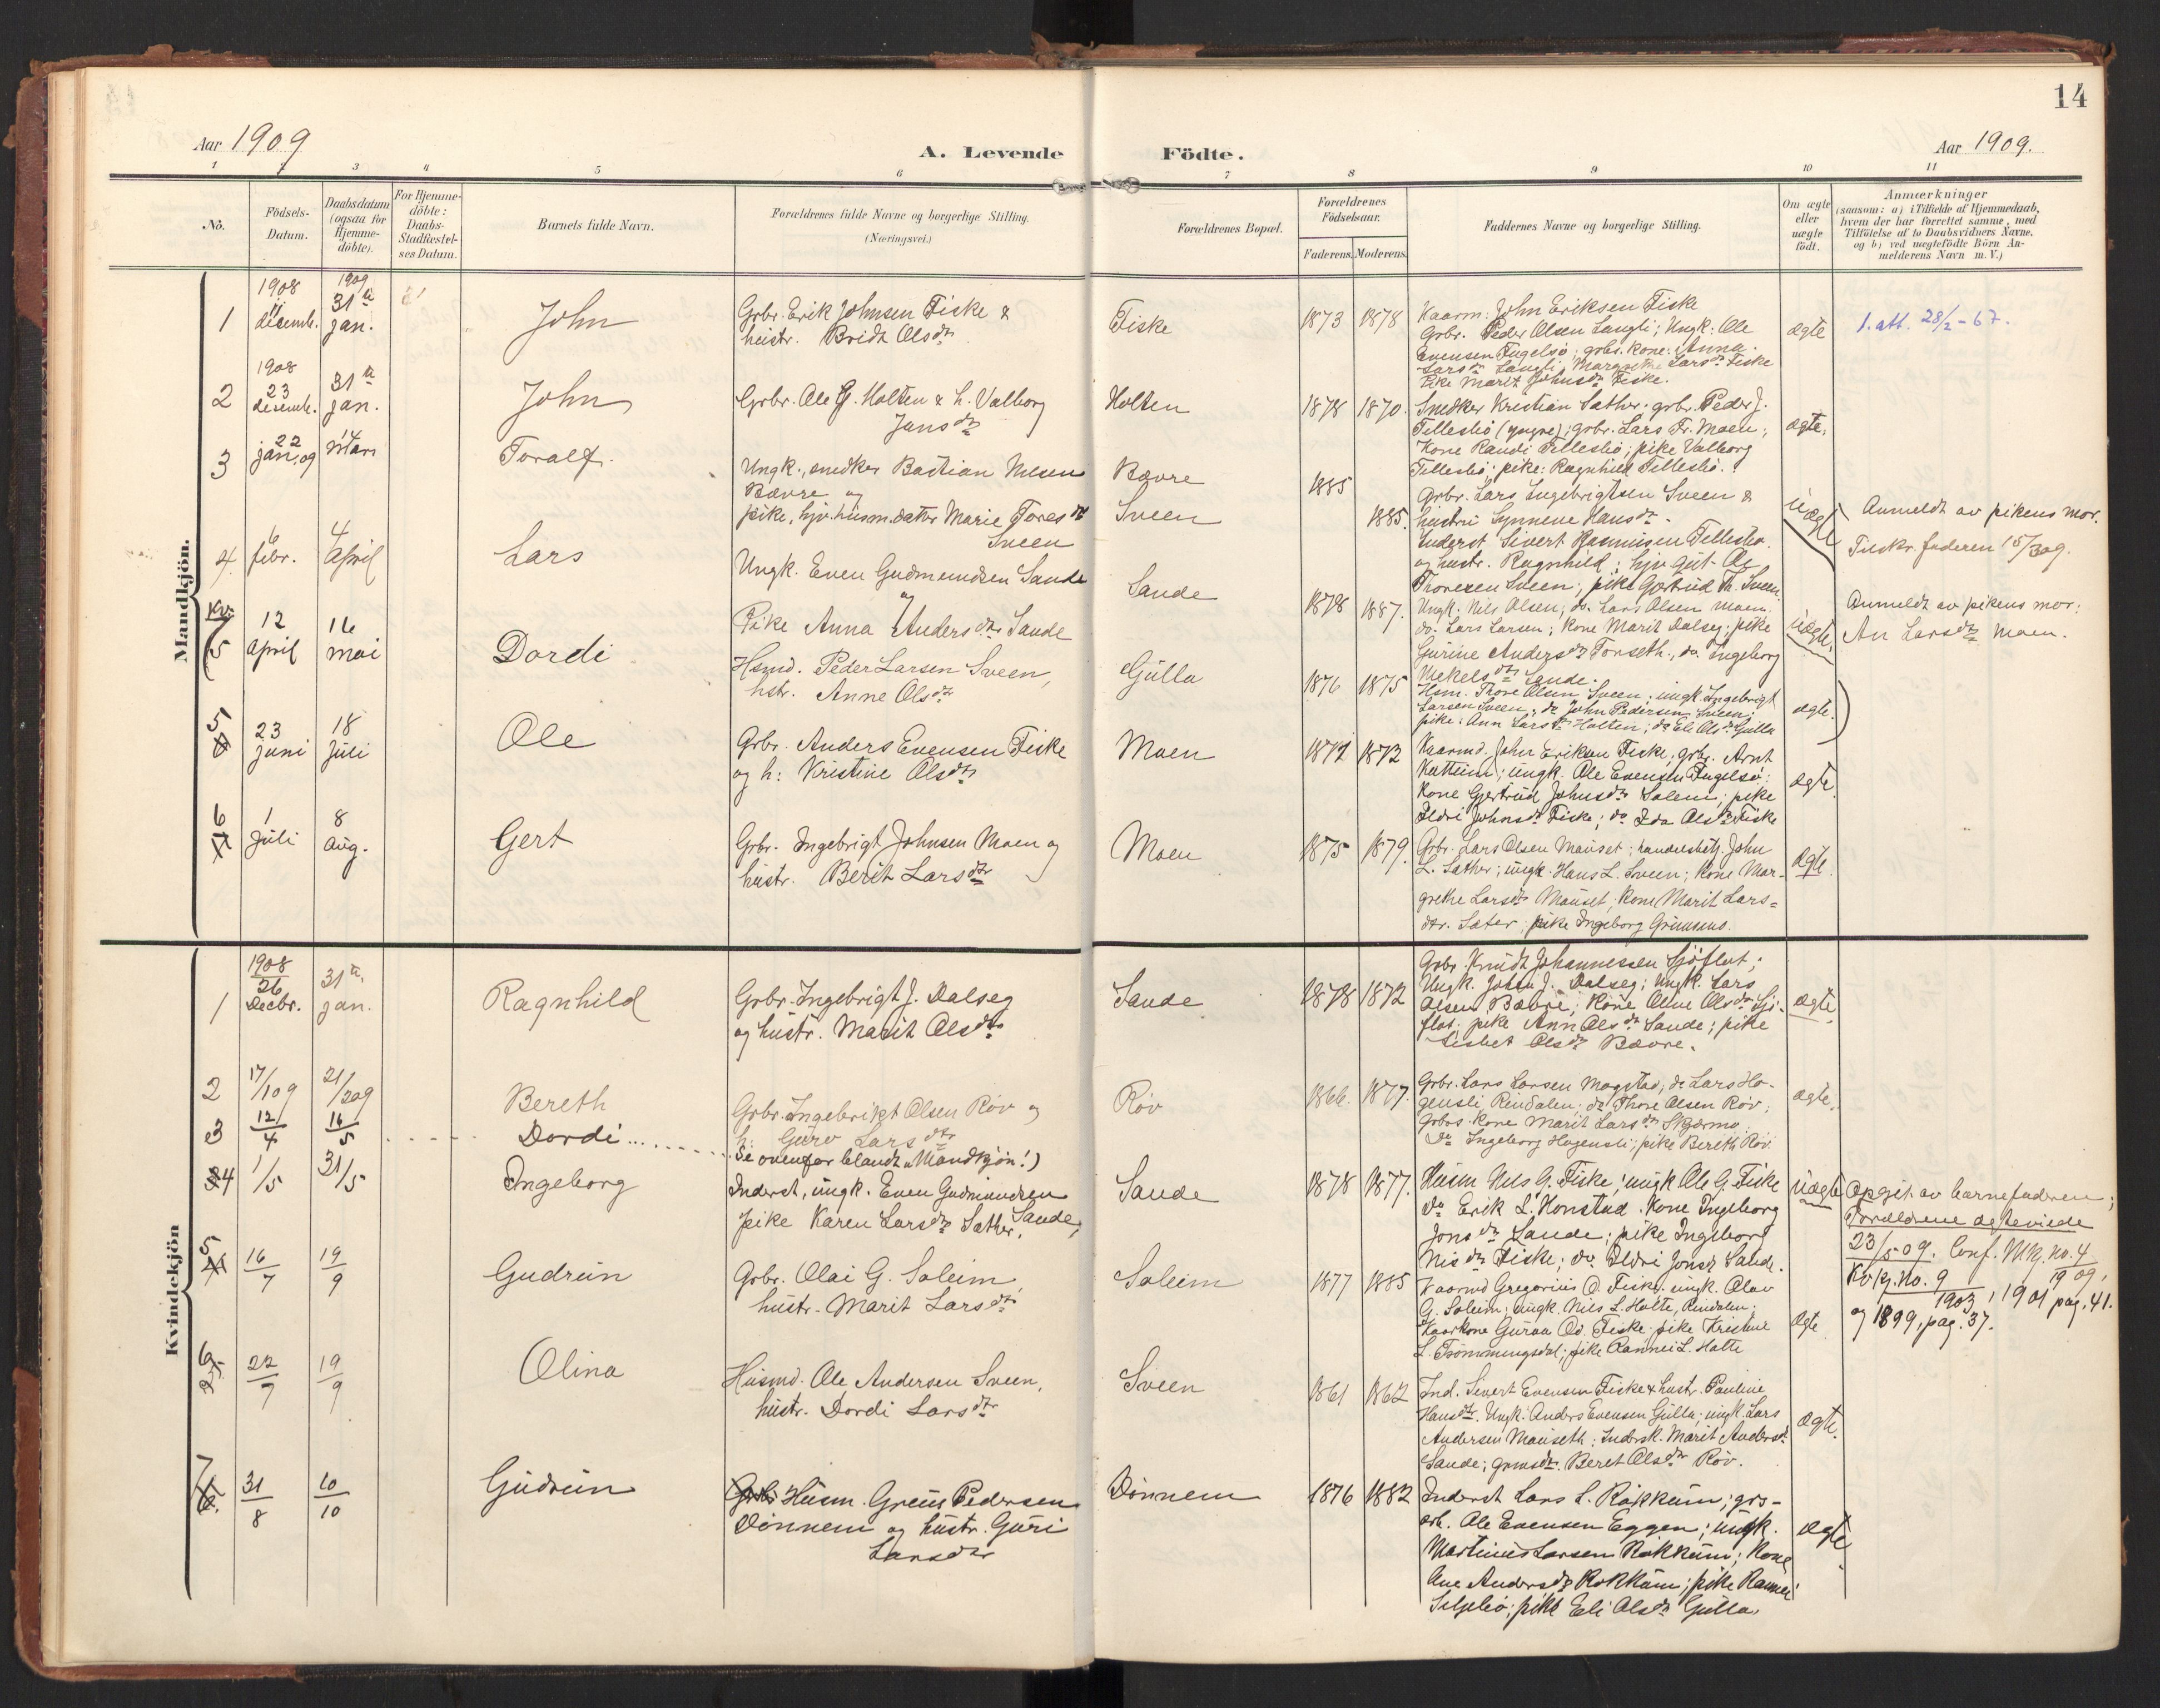 14
Aar 1909
A. Levende Födte.
Aar 1909.
1 2 3 4 5 6 7 8 9 10 11
No.
Födsels-
Datum.
Daabsdatum
(ogsaa for
Hjemme-
döbte).
For Hjemme-
döbte:
Daabs-
Stadfæstel-
ses Datum.
Barnets fulde Navn.
Forældrenes fulde Navne og borgerlige Stilling.
(Næringsvei.)
Forældrenes Bopæl.
Forældrenes
Födselsaar.
Faderens. Moderens.
Faddernes Navne og borgerlige Stilling.
Om ægte
eller
uægte
födt.
Anmærkninger
(saasom: a) i Tilfælde af Hjemmedaab,
hvem der har forrettet samme, med
Tilföielse af to Daabsvidners Navne.
og b) ved uægtefödte Börn An-
melderens Navn m. V.)
Mandkjön.
1
1908
11
desemb.
1909
31te
jan.
John
Grbr. Erik Johnsen Fiske &
hustr. Bridt Olsdtr
Fiske
1873 1878
Kaarm. John Eriksen Fiske
Grbr. Peder Olsen Langli; Ungk. Ole
Evensen Fugelsö; grbr. kone: Anna
Larsdtr Langli; Margrethe Larsdtr Fiske
Pike Marit Johnsdtr Fiske.
ægte
1. att. 28/2-67.
2
1908
23
desemb.
31te
jan.
John
Grbr. Ole G. Holten & h. Valborg
Jonsdtr
Holten
1878 1870.
Snedker Kristian Sæther; grbr. Peder J.
Tillesbö (yngre); grbr. Lars Tr. Moen;
Kone Randi Tillesbö; pike Valborg
Tillesbö; pike: Ragnhild Tillesbö.
ægte.
3
22
jan. 09
14
mars
Toralf.
Ungk., snedker Bastian Nilsen
Bævre og
pike, hjv. husm.datter Marie Toresdtr
Sveen
Bævre
Sveen
1885
1885.
Grbr. Lars Ingebrigtsen Sveen &
hustru Synnene Hansdtr.
Inderst Sivert Rasmusen Tillesbö
og hustr. Ragnhild; hjv. gut Ole
Thoresen Sveen; pike Gjertrud Th. Sveen.
uægte
Anmeldt av pikens mor.
Tilskr. faderen 15/3 09.
4
6
febr.
4
April
Lars
Ungk. Even Gudmundsen Sande
og
Pike Anna Andersdtr Sande
Sande
1878 1887.
Ungk. Nils Olsen; do. Lars Olsen Moen.
do. Lars Larsen; kone Marit Dalseg; pike
Gurine Andersdtr Torseth., do. Ingeborg
Mekelsdtr Sande.
uægte.
Anmeldt av pikens mor:
An Larsdtr Moen.
Kv.
5
12
April
16
mai
Dordi
Husmd. Peder Larsen Sveen,
hstr. Anne Olsdtr
Gulla
1876 1875
Hsm. Thore Olsen Sveen; ungk. Ingebrigt
Larsen Sveen; do John Pedersen Sveen;
pike: Ann Larsdtr Holten; do Eli Olsdtr Gulla
ægte.
5
23
juni
18
juli
Ole
Grbr. Anders Evensen Fiske
og h: Kristine Olsdtr
Moen
1872 1873
Kaarmd. John Eriksen Fiske; grbr. Arnt
Kattum; ungk. Ole Evensen Fugelsö:
Kone Gjertrud Johnsdtr Solem; pike
Ildri Johnsdtr Fiske; do Ida Olsdtr Fiske
ægte.
6
1
juli
8
aug.
Gert
Grbr. Ingebrigt Johnsen Moen og
hustr. Berit Larsdtr
Moen
1875 1879.
Grbr. Lars Olsen Mauset; handelsbetj. John
L. Sæther; ungk. Hans L. Sveen; kone Mar-
grethe Larsdtr Mauset; kone Marit Lars-
dtr. Sæter; pike Ingeborg
ægte.
Kvindekjön
1
1908
26
Decbr.
31te
jan.
Ragnhild
Grbr. Ingebrigt J. Dalseg
og hustr. Marit Olsdtr
Sande
1878 1872
Grbr. Knudt Johannessen Sjöflot;
Ungk. John J. Dalseg; Ungk. Lars
Olsen Bævre; Kone Oline Olsdtr Sjö-
flot; pike Ann Olsdtr Sande; pike
Lisbet Olsdtr Bævre.
ægte.
2
17/1 09
21/2 09
Bereth
Grbr. Ingebrikt Olsen Röv og
h: Guro Larsdtr
Röv
1866. 1877.
Grbr. Lars Larsen Magstad; do Lars Ho-
gensli, Rindalen; do Thore Olsen Röv;
Grbrs. kone Marit Larsdtr Skjærmo
do Ingeborg Hagensli; pike Bereth Röv.
ægte.
3
12/4
16/5
Dordi
(Se ovenfor blandt Mandkjön!)
4
1/5
31/5
Ingeborg
Inderst, ungk. Even Gudmundsen
Sande,
pike Karen Larsdtr Sæther.
Sande
1878 1877.
Husm. Nils G. Fiske; ungk Ole G. Fiske
do Erik L. Honstad. Kone Ingeborg
Jonsdtr Sande; pike Ingeborg
Nisdtr Fiske; do. Ildri Jonsdtr Sande.
uægte
Opgit av barnefaderen;
Forældrene ægteviede
23/5 09. Conf. Mkj. no. 4
1909,
Kvkj. no. 9
1903, 1901 pag. 41.
og 1899, pag. 37.
5
16/7
19/9
Gudrun
Grbr. Olai G. Soleim,
hustr. Marit Larsdtr
Soleim
1877 1885
Kaarmd Gregorius O. Fiske; ungk. Olav
G. Soleim; ungk. Nils L. Holte, Rindalen;
Kaarkone Guraa Od. Fiske; pike Kristine
L. Trömmingsdal; pike Rannei L. Holte
ægte
6
22/7
19/9
Olina
Husmd. Ole Andersen Sveen,
hustr. Dordi Larsdtr
Sveen
1861 1862
Ind. Sivert Evensen Fiske & hustr. Pauline
Hansdtr. Ungk. Anders Evensen Gulla; ungk. Lars
Andersen Mauseth; Indersk. Marit Andersdtr
Sande; grmsdtr. Beret Olsdtr Röv.
ægte.
7
31/8
10/10
Gudrun
Husm. Greus Pedersen
Dönnem og hustr. Guri
Larsdtr
Dönnem
1876 1882
Inderst Lars L. Rokkum; grs-
arb. Ole Evensen Eggen; ungk.
Martinus Larsen Rokkum; Kone
Ane Andersdtr Rokkum; pike Rannei
Seljebö; pike Eli Olsdtr Gulla.
ægte